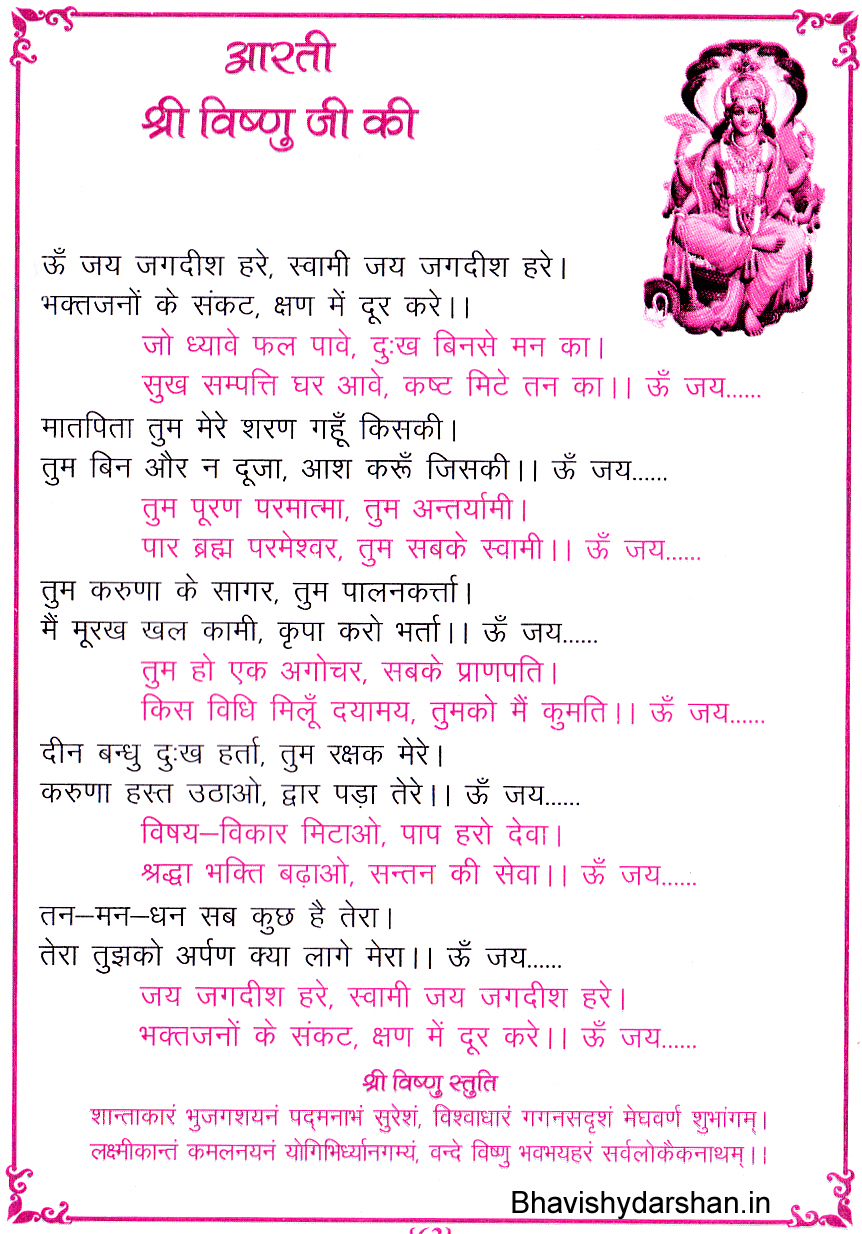 आरती
श्री विष्णु जी की
ऊँ जय जगदीश हरे, स्वामी जय जगदीश हरे।
भक्तजनों के संकट, क्षण में दूर करे।।
जो ध्यावे फल पावे, दुःख बिनसे मन का।
सुख सम्पत्ति घर आवे, कष्ट मिटे तन का।। ऊँ जय......
मातपिता तुम मेरे शरण गहूँ किसकी।
तुम बिन और न दूजा, आश करूँ जिसकी।। ऊँ जय......
तुम पूरण परमात्मा, तुम अन्तर्यामी।
पार ब्रह्म परमेश्वर, तुम सबके स्वामी।। ऊँ जय......
तुम करुणा के सागर, तुम पालनकर्त्ता।
मैं मूरख खल कामी, कृपा करो भर्ता।। ऊँ जय......
तुम हो एक अगोचर, सबके प्राणपति।
किस विधि मिलूँ दयामय, तुमको मैं कुमति।। ऊँ जय......
दीन बन्धु दुःख हर्ता, तुम रक्षक मेरे।
करुणा हस्त उठाओ, द्वार पड़ा तेरे।। ऊँ जय......
विषय–विकार मिटाओ, पाप हरो देवा।
श्रद्धा भक्ति बढ़ाओ, सन्तन की सेवा।। ऊँ जय......
तन–मन–धन सब कुछ है तेरा।
तेरा तुझको अर्पण क्या लागे मेरा।। ऊँ जय......
जय जगदीश हरे, स्वामी जय जगदीश हरे।
भक्तजनों के संकट, क्षण में दूर करे।। ऊँ जय......
श्री विष्णु स्तुति
शान्ताकारं भुजगशयनं पद्मनाभं सुरेशं, विश्वाधारं गगनसदृशं मेघवर्ण शुभांगम्।
लक्ष्मीकान्तं कमलनयनं योगिभिर्ध्यानगम्यं, वन्दे विष्णु भवभयहरं सर्वलोकैकनाथम्।।
Bhavishydarshan.in